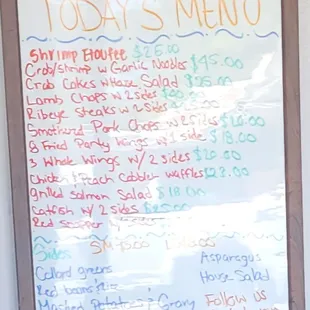 TODAY'S MENU
Shrimp Etouffee $25.00
Crab/shrimp w Garlic Noodles $45.00
Crab Cakes w House Salad $25.00
Lamb Chops w 2 sides
Ribeye Steaks w 2 sides
Smothered Pork Chops w 2 sides
8 Fried Party Wings w 1 side $18.00
3 Whole Wings w/ 2 sides $20.00
Chicken & Peach Cobbler waffles
grilled Salmon Salad $18.00
Catfish w/ 2 sides $25.00
Red Snapper
Sides SM
Collard greens
Red beans rice
Mashed Potatoes & Gravy
Asparagus
House Salad
Follow us